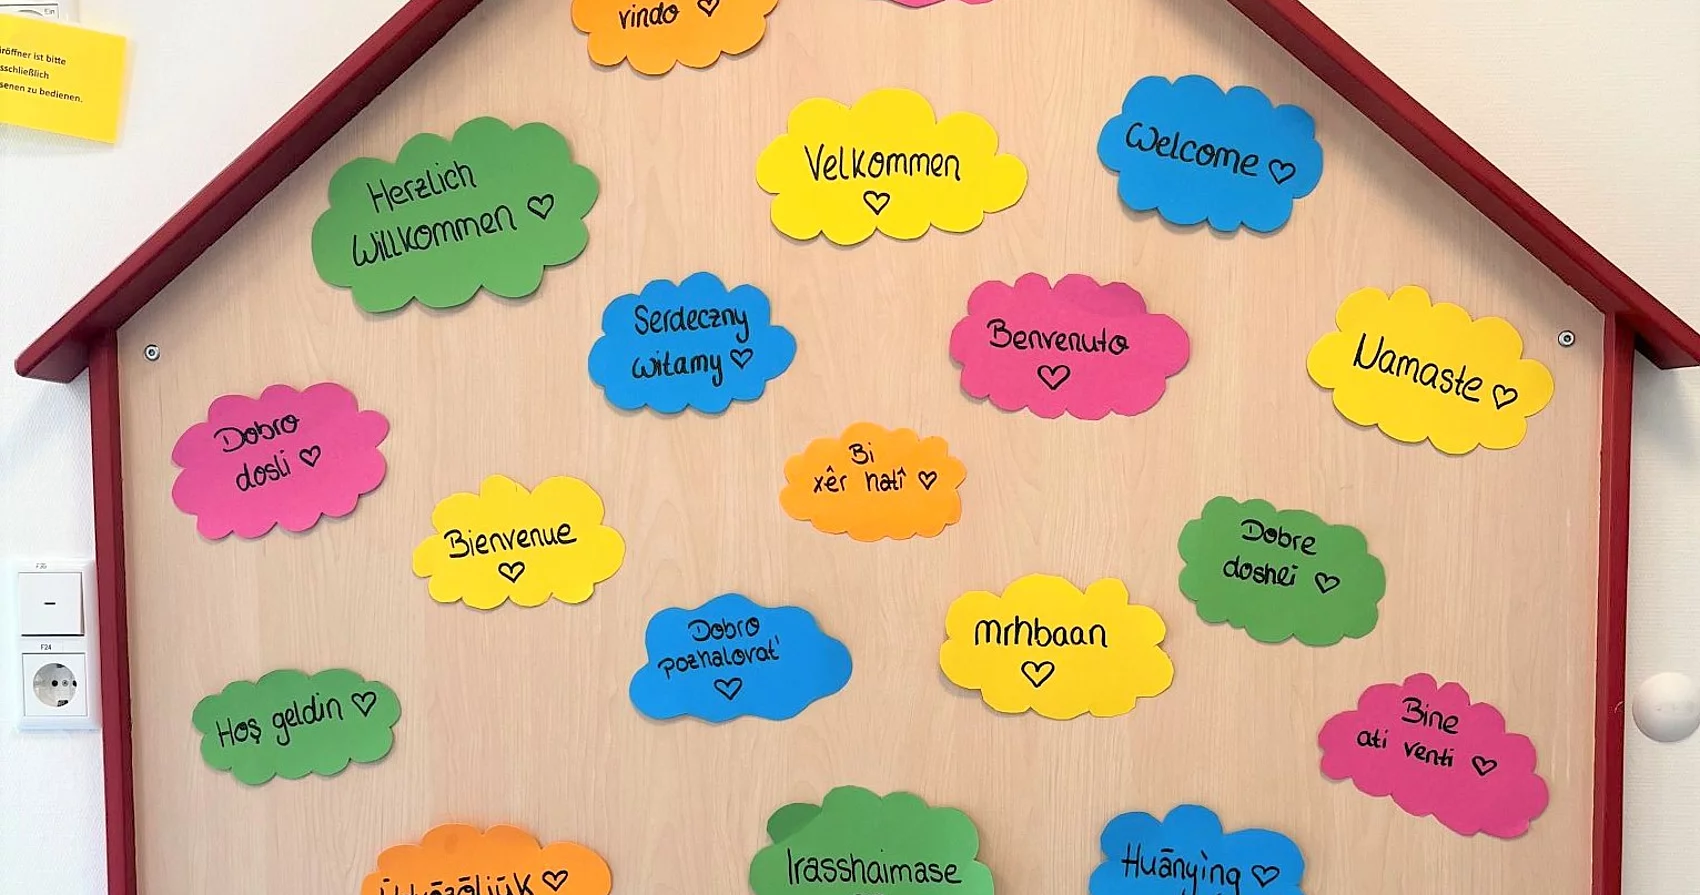 Ein
röffner ist bitte
sschließlich
senen zu bedienen.
vindo ♡
Herzlich
Willkommen ♡
Velkommen
♡
Welcome ♡
Serdeczny
witamy ♡
Benvenuto
♡
Namaste ♡
Dobro
dosli ♡
Bi
xêr hatî ♡
Bienvenue
♡
Dobre
doshli ♡
Dobro
pozhalovat'
♡
mrhbaan
♡
F35
F24
Hoş geldin ♡
Bine
ati venti ♡
Irasshaimase
Huānyìng ♡